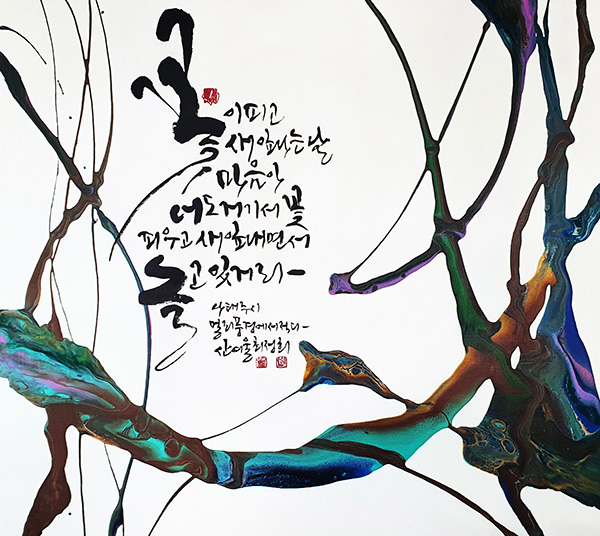 꽃이피고
새잎나는날
마음아
너도거기서 꽃
피우고 새잎내면서
놀고 있거라
나태주시
멀리풍경에서적다
산여울최정희